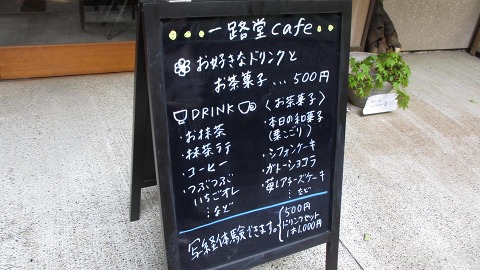 一路堂cafe
お好きなドリンクと
お茶菓子…500円
DRINK
・お抹茶
・抹茶ラテ
・コーヒー
・つぶつぶ
いちごオレ
…など
〈お茶菓子〉
・本日の和菓子
(栗こごり)
・シフォンケーキ
・ガトーショコラ
・苺レアチーズケーキ
…など
写経体験できます。
500円
ドリンクセット
は1,000円